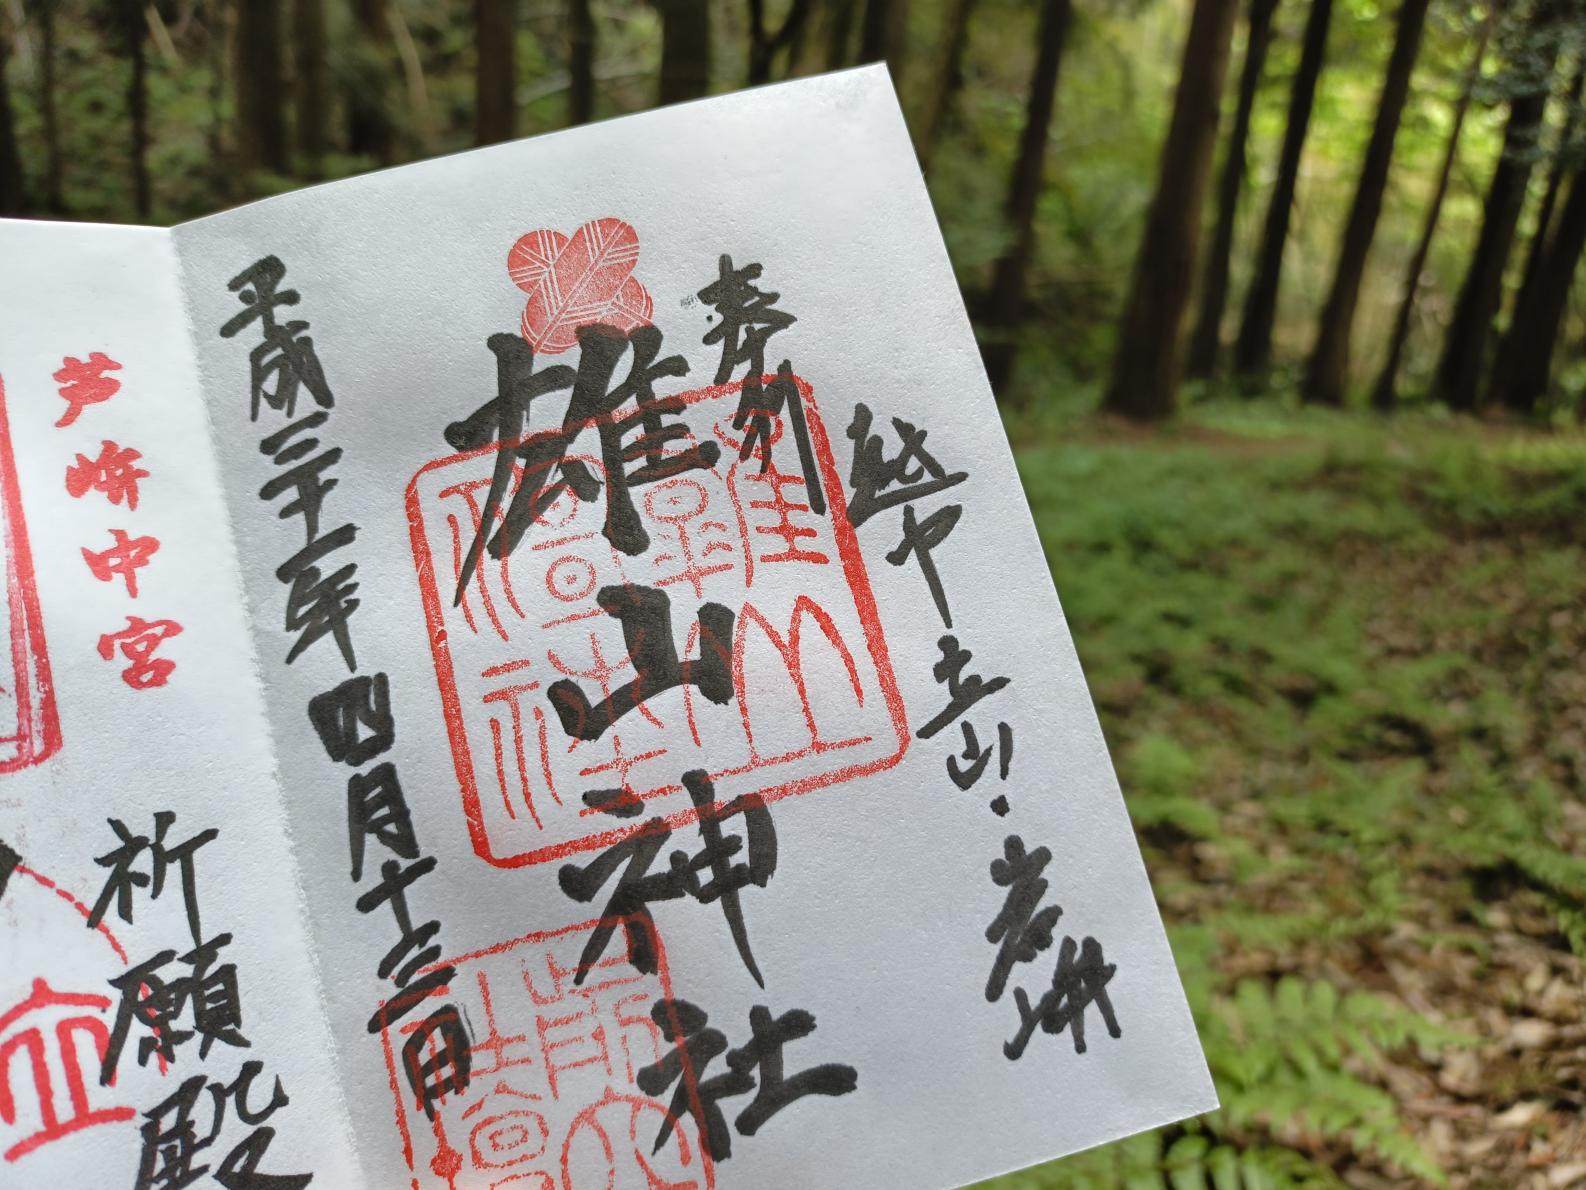 奉拝
越中立山・岩峅
雄山神社
雄山神社
平成三十一年四月十三日
芦峅中宮
祈願殿